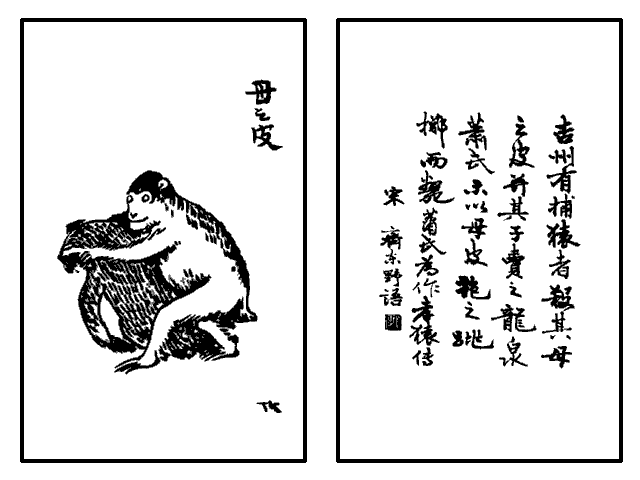 母之皮
TK
吉州有捕猿者殺其母
之皮并其子賣之龍泉
蕭氏示以母皮抱之跳
擲而斃蕭氏為作孝猿传
宋 齊東野語